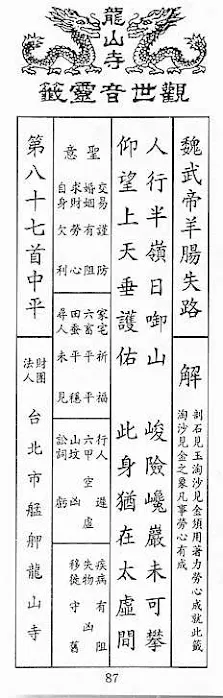 龍山寺
觀世音靈籤
魏武帝羊腸失路
解
剖石見玉淘沙見金須用著力勞心成就此籤
淘沙見金之象凡事勞心有成
人行半嶺日啣山 峻險巉巖未可攀
仰望上天垂護佑 此身猶在太虛間
聖意
交易謹防
婚姻有阻
求財勞心
自身欠利
家宅祈福
六畜平平
田蚕平穩
尋人未見
行人遲
六甲空虛
山坟凶
訟詞虧
疾病有阻
失物凶
移徙守舊
第八十七首中平
財團
法人
台北市艋舺龍山寺
87